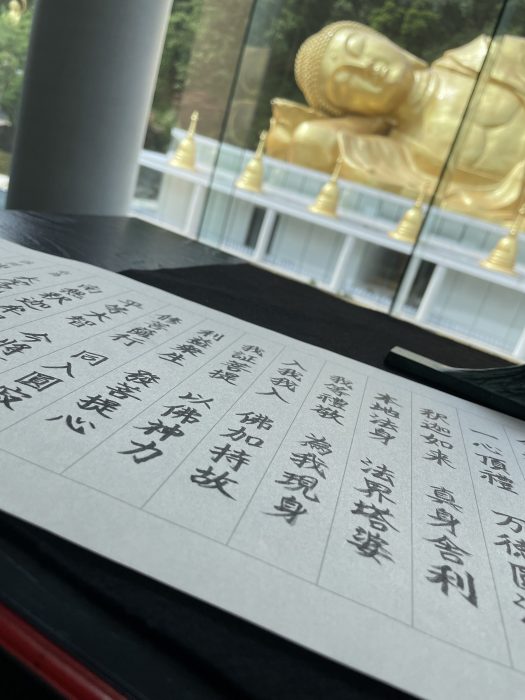 一心頂禮 万德圓
釈迦如来 真身舎利
本地法身 法界塔婆
我等禮敬 為我現身
入我我入 佛加持故
我証菩提 以佛神力
利益衆生 發菩提心
修菩薩行 同入圓寂
平等大智 今将
南無釈迦